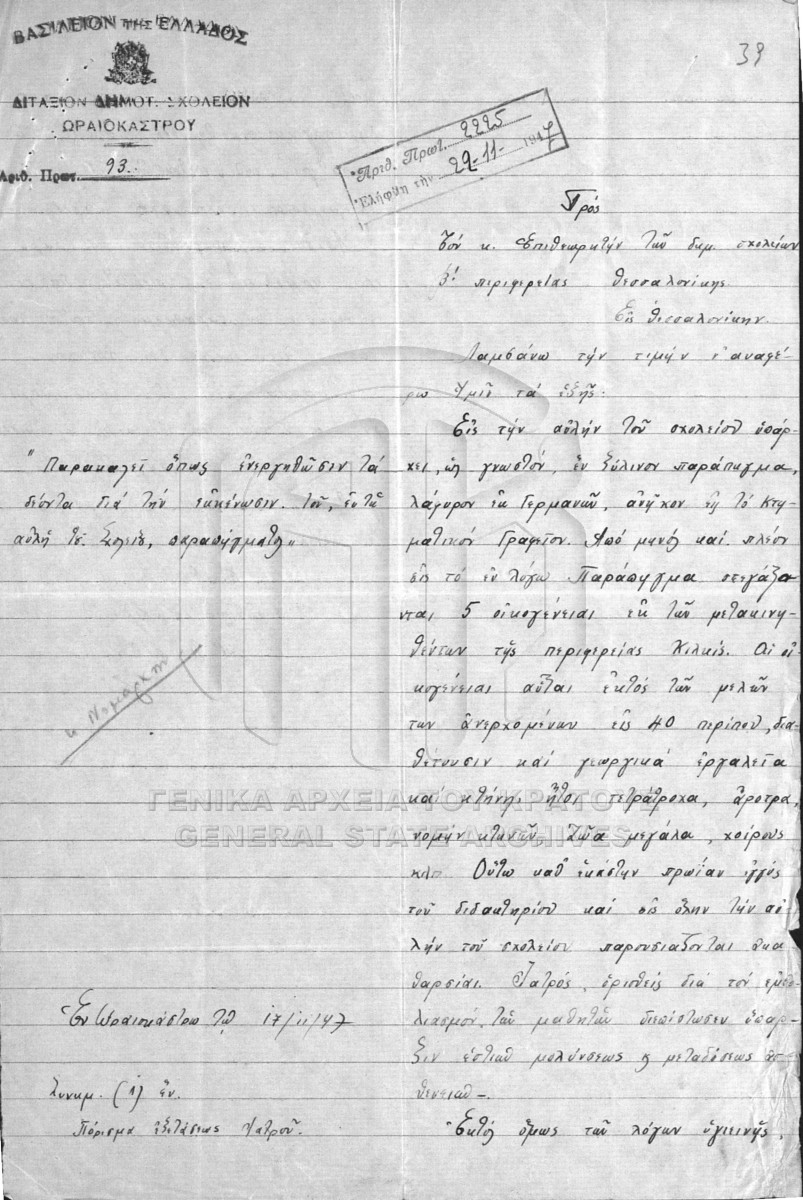 ΒΑΣΙΛΕΙΟΝ ΤΗΣ ΕΛΛΑΔΟΣ
39
ΔΙΤΑΞΙΟΝ ΔΗΜΟΤ. ΣΧΟΛΕΙΟΝ
ΩΡΑΙΟΚΑΣΤΡΟΥ
Ἀριθ. Πρωτ. 93.
Ἀριθ. Πρωτ. 2225
Ἐλήφθη τὴν 29-11- 1947
Πρός
Τόν κ. Ἐπιθεωρητήν τῶν δημ. σχολείων
β' περιφερείας Θεσσαλονίκης
Εἰς Θεσσαλονίκην.
Λαμβάνω τήν τιμήν ν' ἀναφέ-
ρω Ὑμῖν τά ἑξῆς:
Εἰς τήν αὐλήν τοῦ σχολείου ὑπάρ-
χει, ὡς γνωστόν, ἕν ξύλινον παράπηγμα,
λάφυρον ἐκ Γερμανῶν, ἀνῆκον εἰς τό Κτη-
ματικόν Γραφεῖον. Ἀπό μηνός καί πλέον
εἰς τό ἐν λόγῳ Παράπηγμα στεγάζο
νται 5 οἰκογένειαι ἐκ τῶν μετακινη-
θέντων τῆς περιφερείας Κιλκίς. Αἱ οἰ-
κογένειαι αὗται ἐκτός τῶν μελῶν
των ἀνερχομένων εἰς 40 περίπου, δια-
θέτουσιν καί γεωργικά ἐργαλεῖα
καί κτήνη, ἤτοι τετράτροχα, ἄροτρα,
νομήν κτηνῶν, ζῶα μεγάλα, χοίρους
κλπ. Οὕτω καθ' ἑκάστην πρωΐαν ἐντός
τοῦ διδακτηρίου καί εἰς ὅλην τήν αὐ-
λήν τοῦ σχολείου παρουσιάζονται ἀκα-
θαρσίαι. Ἰατρός, ὁρισθείς διά τόν ἐμβο-
λιασμόν τῶν μαθητῶν διεπίστωσεν ὕπαρ-
ξιν ἑστιῶν μολύνσεως & μεταδόσεως ἀσ-
θενειῶν.
Ἐκτός ὅμως τῶν λόγων ὑγιεινῆς,
"Παρακαλεῖ ὅπως ἐνεργηθῶσιν τά
δέοντα διά τήν ἐκκένωσιν τοῦ, ἐν τῇ
αὐλῇ τοῦ Σχολείου, παραπήγματος"
κ Νομάρχην
Ἐν Ὡραιοκάστρῳ τῇ 17/11/47
Συνημ. (1) ἕν.
Πόρισμα ἐξετάσεως Ἰατροῦ.
ΓΕΝΙΚΑ ΑΡΧΕΙΑ ΤΟΥ ΚΡΑΤΟΥΣ
GENERAL STATE ARCHIVES